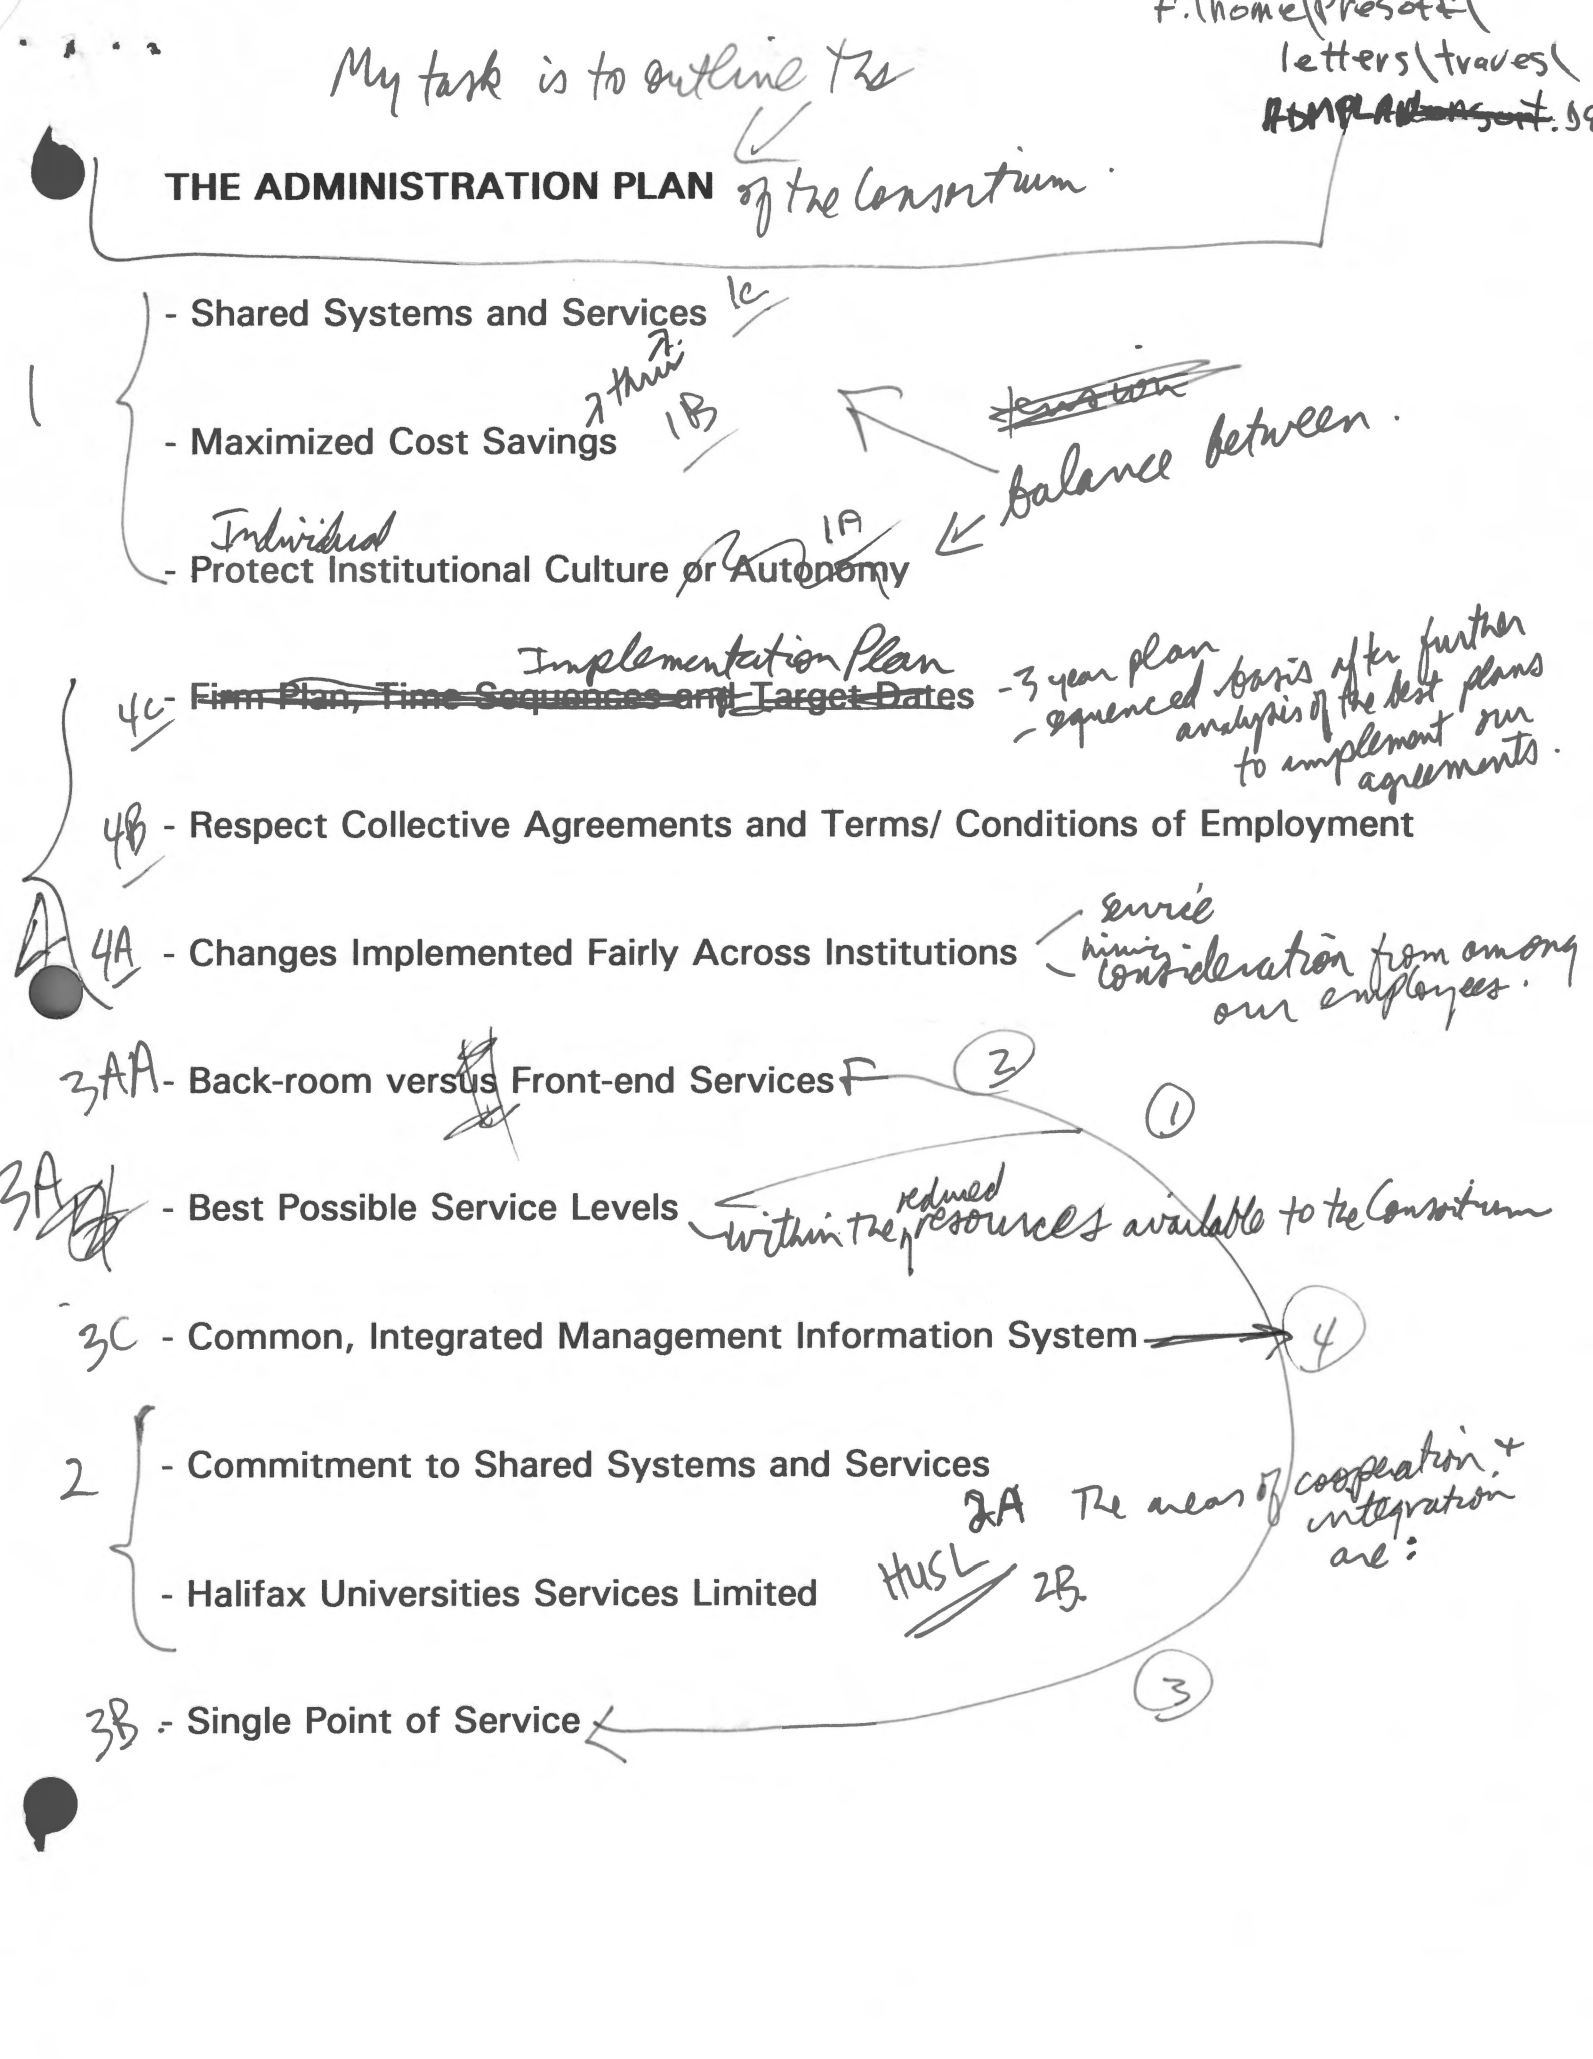 F:\home\Presoff\
letters\traves\
ADMPLAN
My task is to outline the
THE ADMINISTRATION PLAN of the Consortium.
- Shared Systems and Services 1C
thru
1
- Maximized Cost Savings 1B
tension
balance between.
Individual
1A
- Protect Institutional Culture or Autonomy
Implementation Plan
4C - Firm Plan, Time Sequences and Target Dates
- 3 year plan
- sequenced basis after further
analysis of the best plans
to implement our
agreements.
4B - Respect Collective Agreements and Terms/ Conditions of Employment
4
4A - Changes Implemented Fairly Across Institutions
service
hiring
consideration from among
our employees.
3AA - Back-room versus Front-end Services
2
1
3A - Best Possible Service Levels
within the reduced resources available to the Consortium
3C - Common, Integrated Management Information System
4
2
- Commitment to Shared Systems and Services
2A The areas of cooperation +
integration
are:
- Halifax Universities Services Limited
HUSL
2B.
3
3B - Single Point of Service